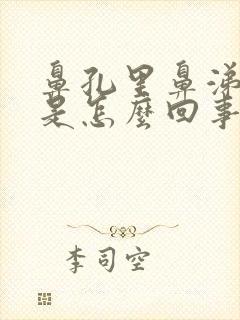 鼻孔里鼻涕
是怎麼回事
李司空